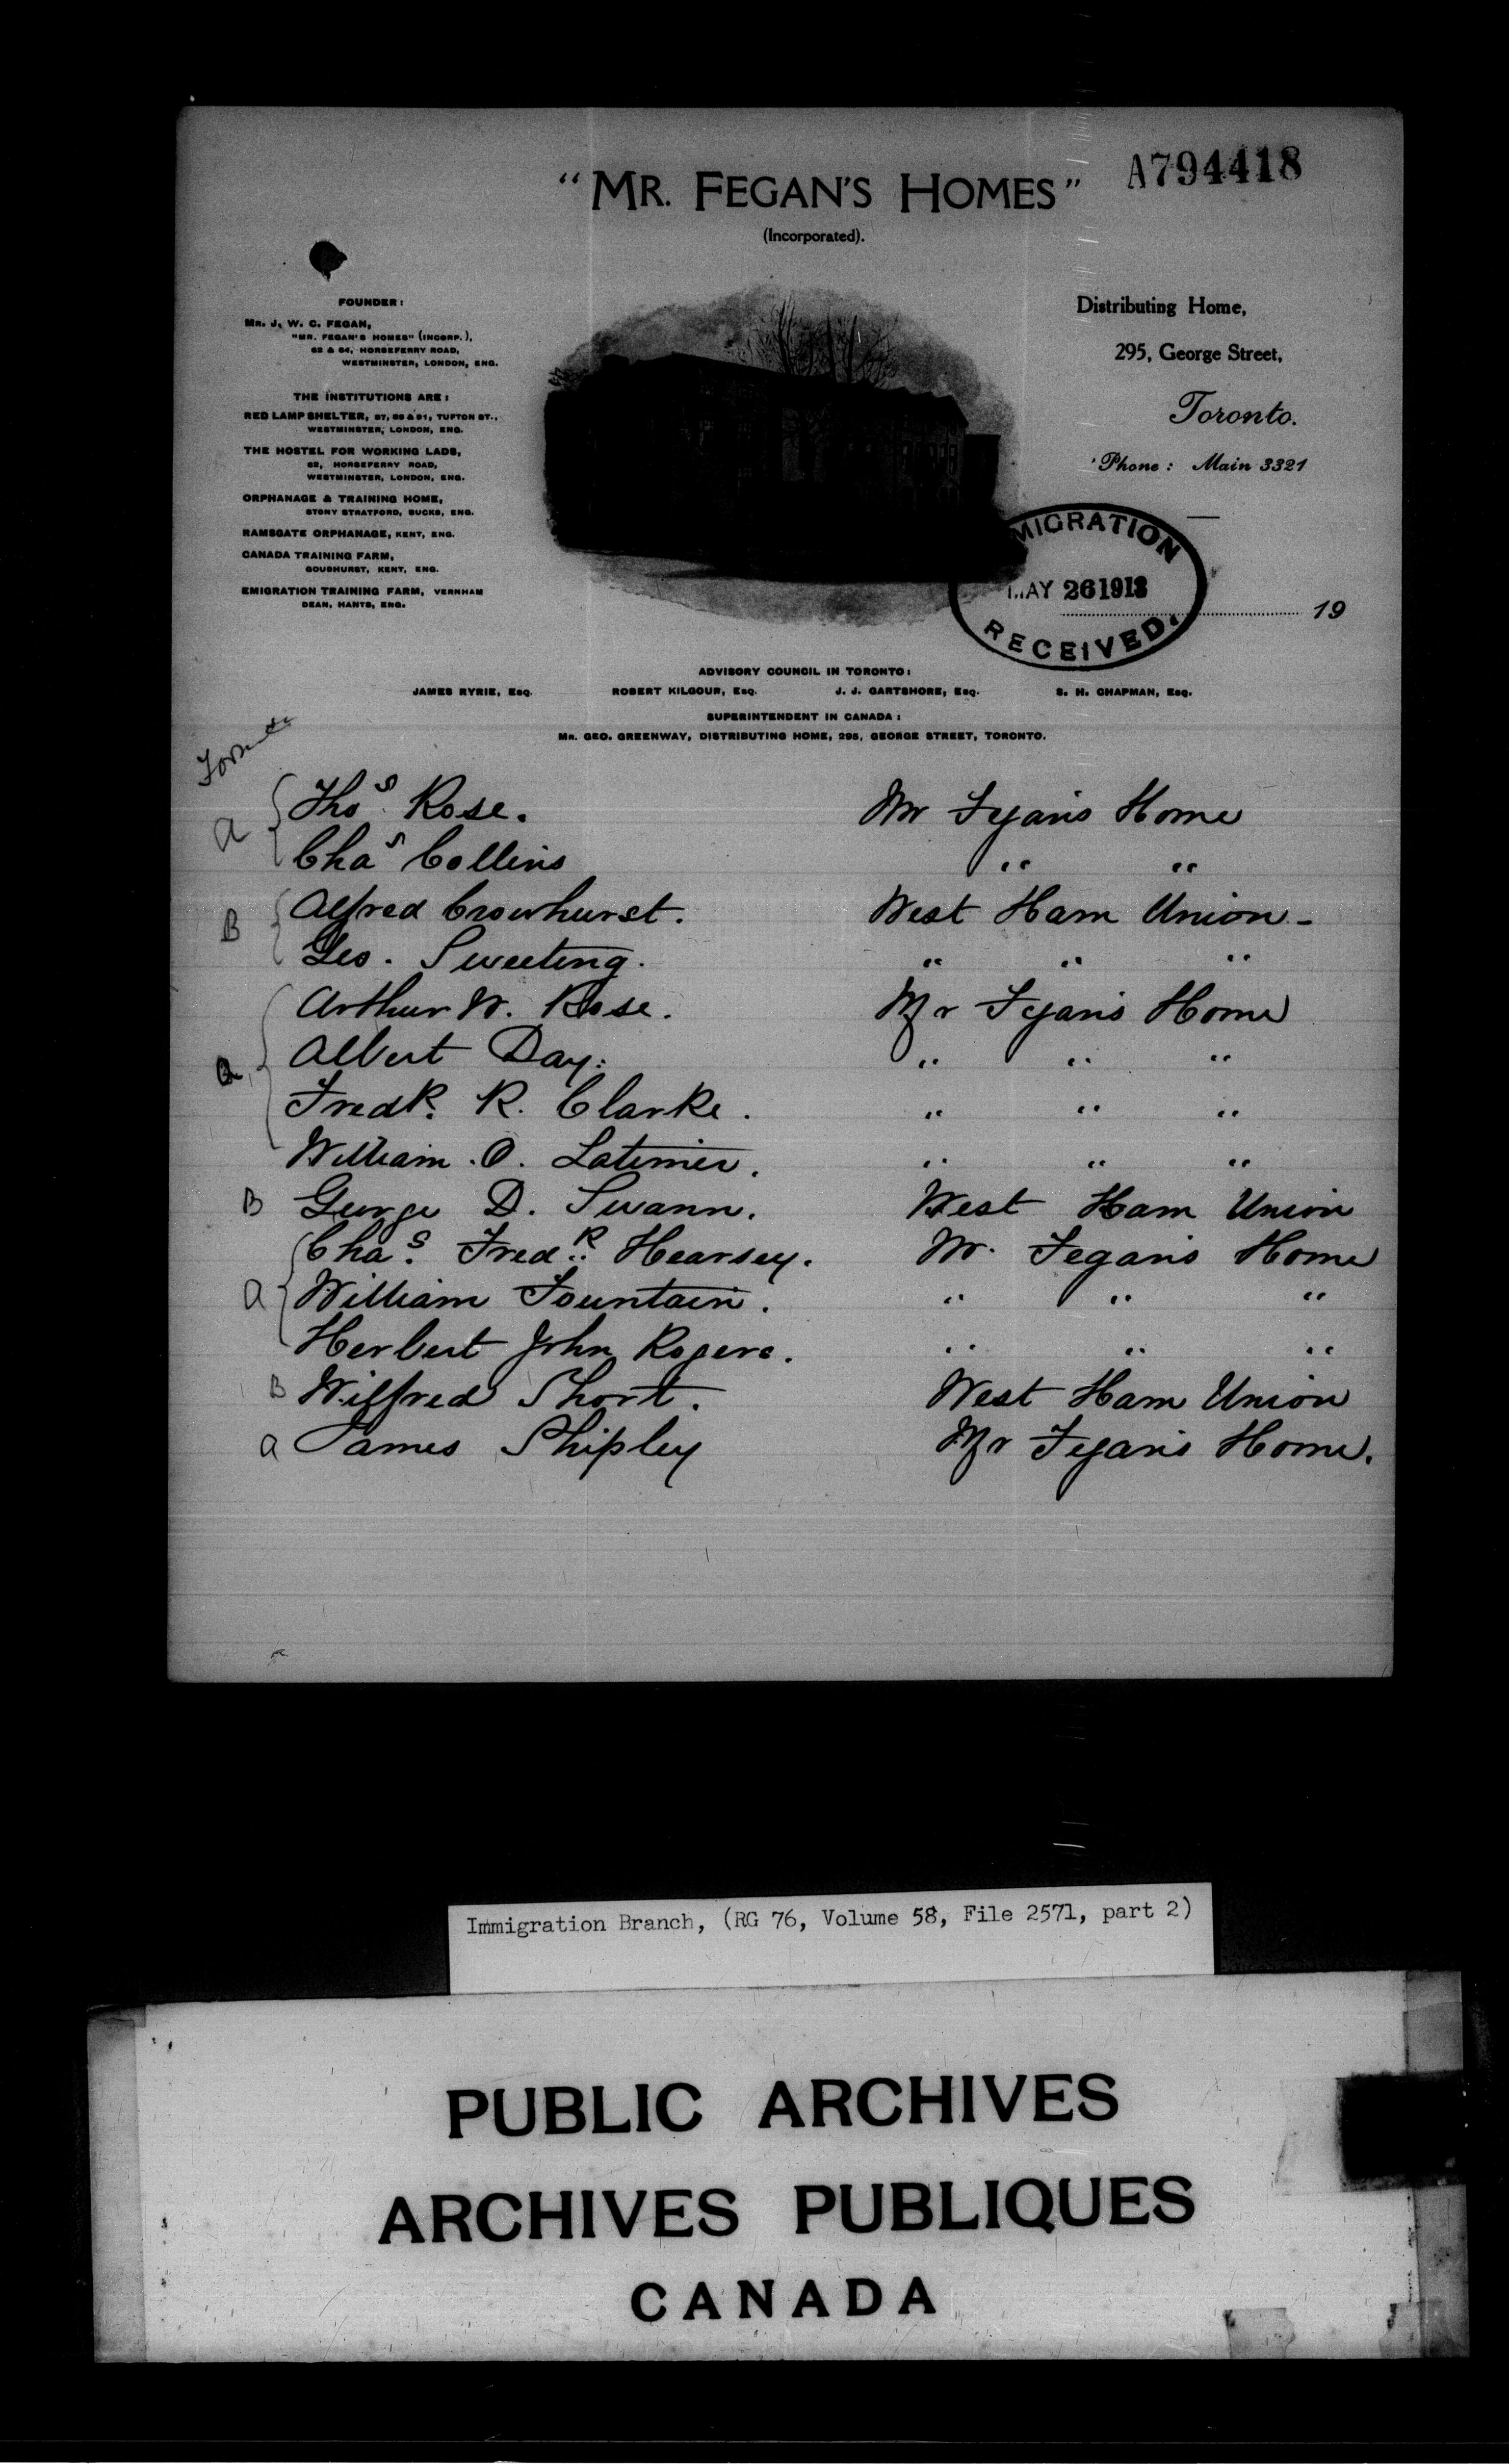 "MR. FEGAN'S HOMES"
A794418
(Incorporated).
FOUNDER:
MR. J. W. C. FEGAN,
"MR. FEGAN'S HOMES" (INCORP.),
62 & 64, HORSEFERRY ROAD,
WESTMINSTER, LONDON, ENG.
THE INSTITUTIONS ARE:
RED LAMP SHELTER, 87, 89 & 91, TUFTON ST.,
WESTMINSTER, LONDON, ENG.
THE HOSTEL FOR WORKING LADS,
62, HORSEFERRY ROAD,
WESTMINSTER, LONDON, ENG.
ORPHANAGE & TRAINING HOME,
STONY STRATFORD, BUCKS, ENG.
RAMSGATE ORPHANAGE, KENT, ENG.
CANADA TRAINING FARM,
GOUDHURST, KENT, ENG.
EMIGRATION TRAINING FARM, VERNHAM
DEAN, HANTS, ENG.
Distributing Home,
295, George Street,
Toronto.
'Phone: Main 3321
MIGRATION
MAY 26 1913
RECEIVED.
19
ADVISORY COUNCIL IN TORONTO:
JAMES RYRIE, Esq. ROBERT KILGOUR, Esq. J. J. GARTSHORE, Esq. S. H. CHAPMAN, Esq.
SUPERINTENDENT IN CANADA:
MR. GEO. GREENWAY, DISTRIBUTING HOME, 295, GEORGE STREET, TORONTO.
a Thos Rose. Mr Fegan's Home
Chas Collins " "
B Alfred Crowhurst. West Ham Union -
Geo. Sweeting. " " "
Arthur W. Rose. Mr Fegan's Home
a Albert Day. " " "
Fredk. R. Clarke. " " "
William . O. Latimer. " " "
B George D. Swann. West Ham Union
Chas. Fredk. Hearsey. Mr. Fegan's Home
a William Fountain. " " "
Herbert John Rogers. " " "
B Wilfred Short. West Ham Union
a James Shipley Mr Fegan's Home.
Immigration Branch, (RG 76, Volume 58, File 2571, part 2)
PUBLIC ARCHIVES
ARCHIVES PUBLIQUES
CANADA